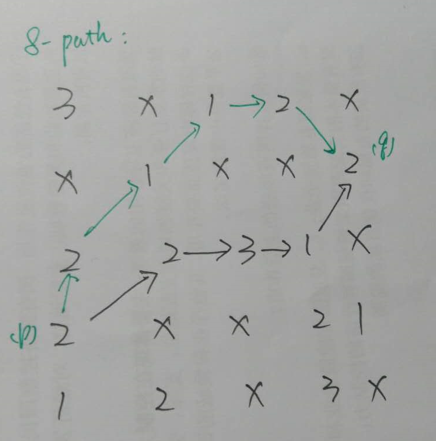 8-path:
3 x 1 → 2 x
x 1 x x 2 (q)
2 2 → 3 → 1 x
(p) 2 x x 2 1
1 2 x 3 x